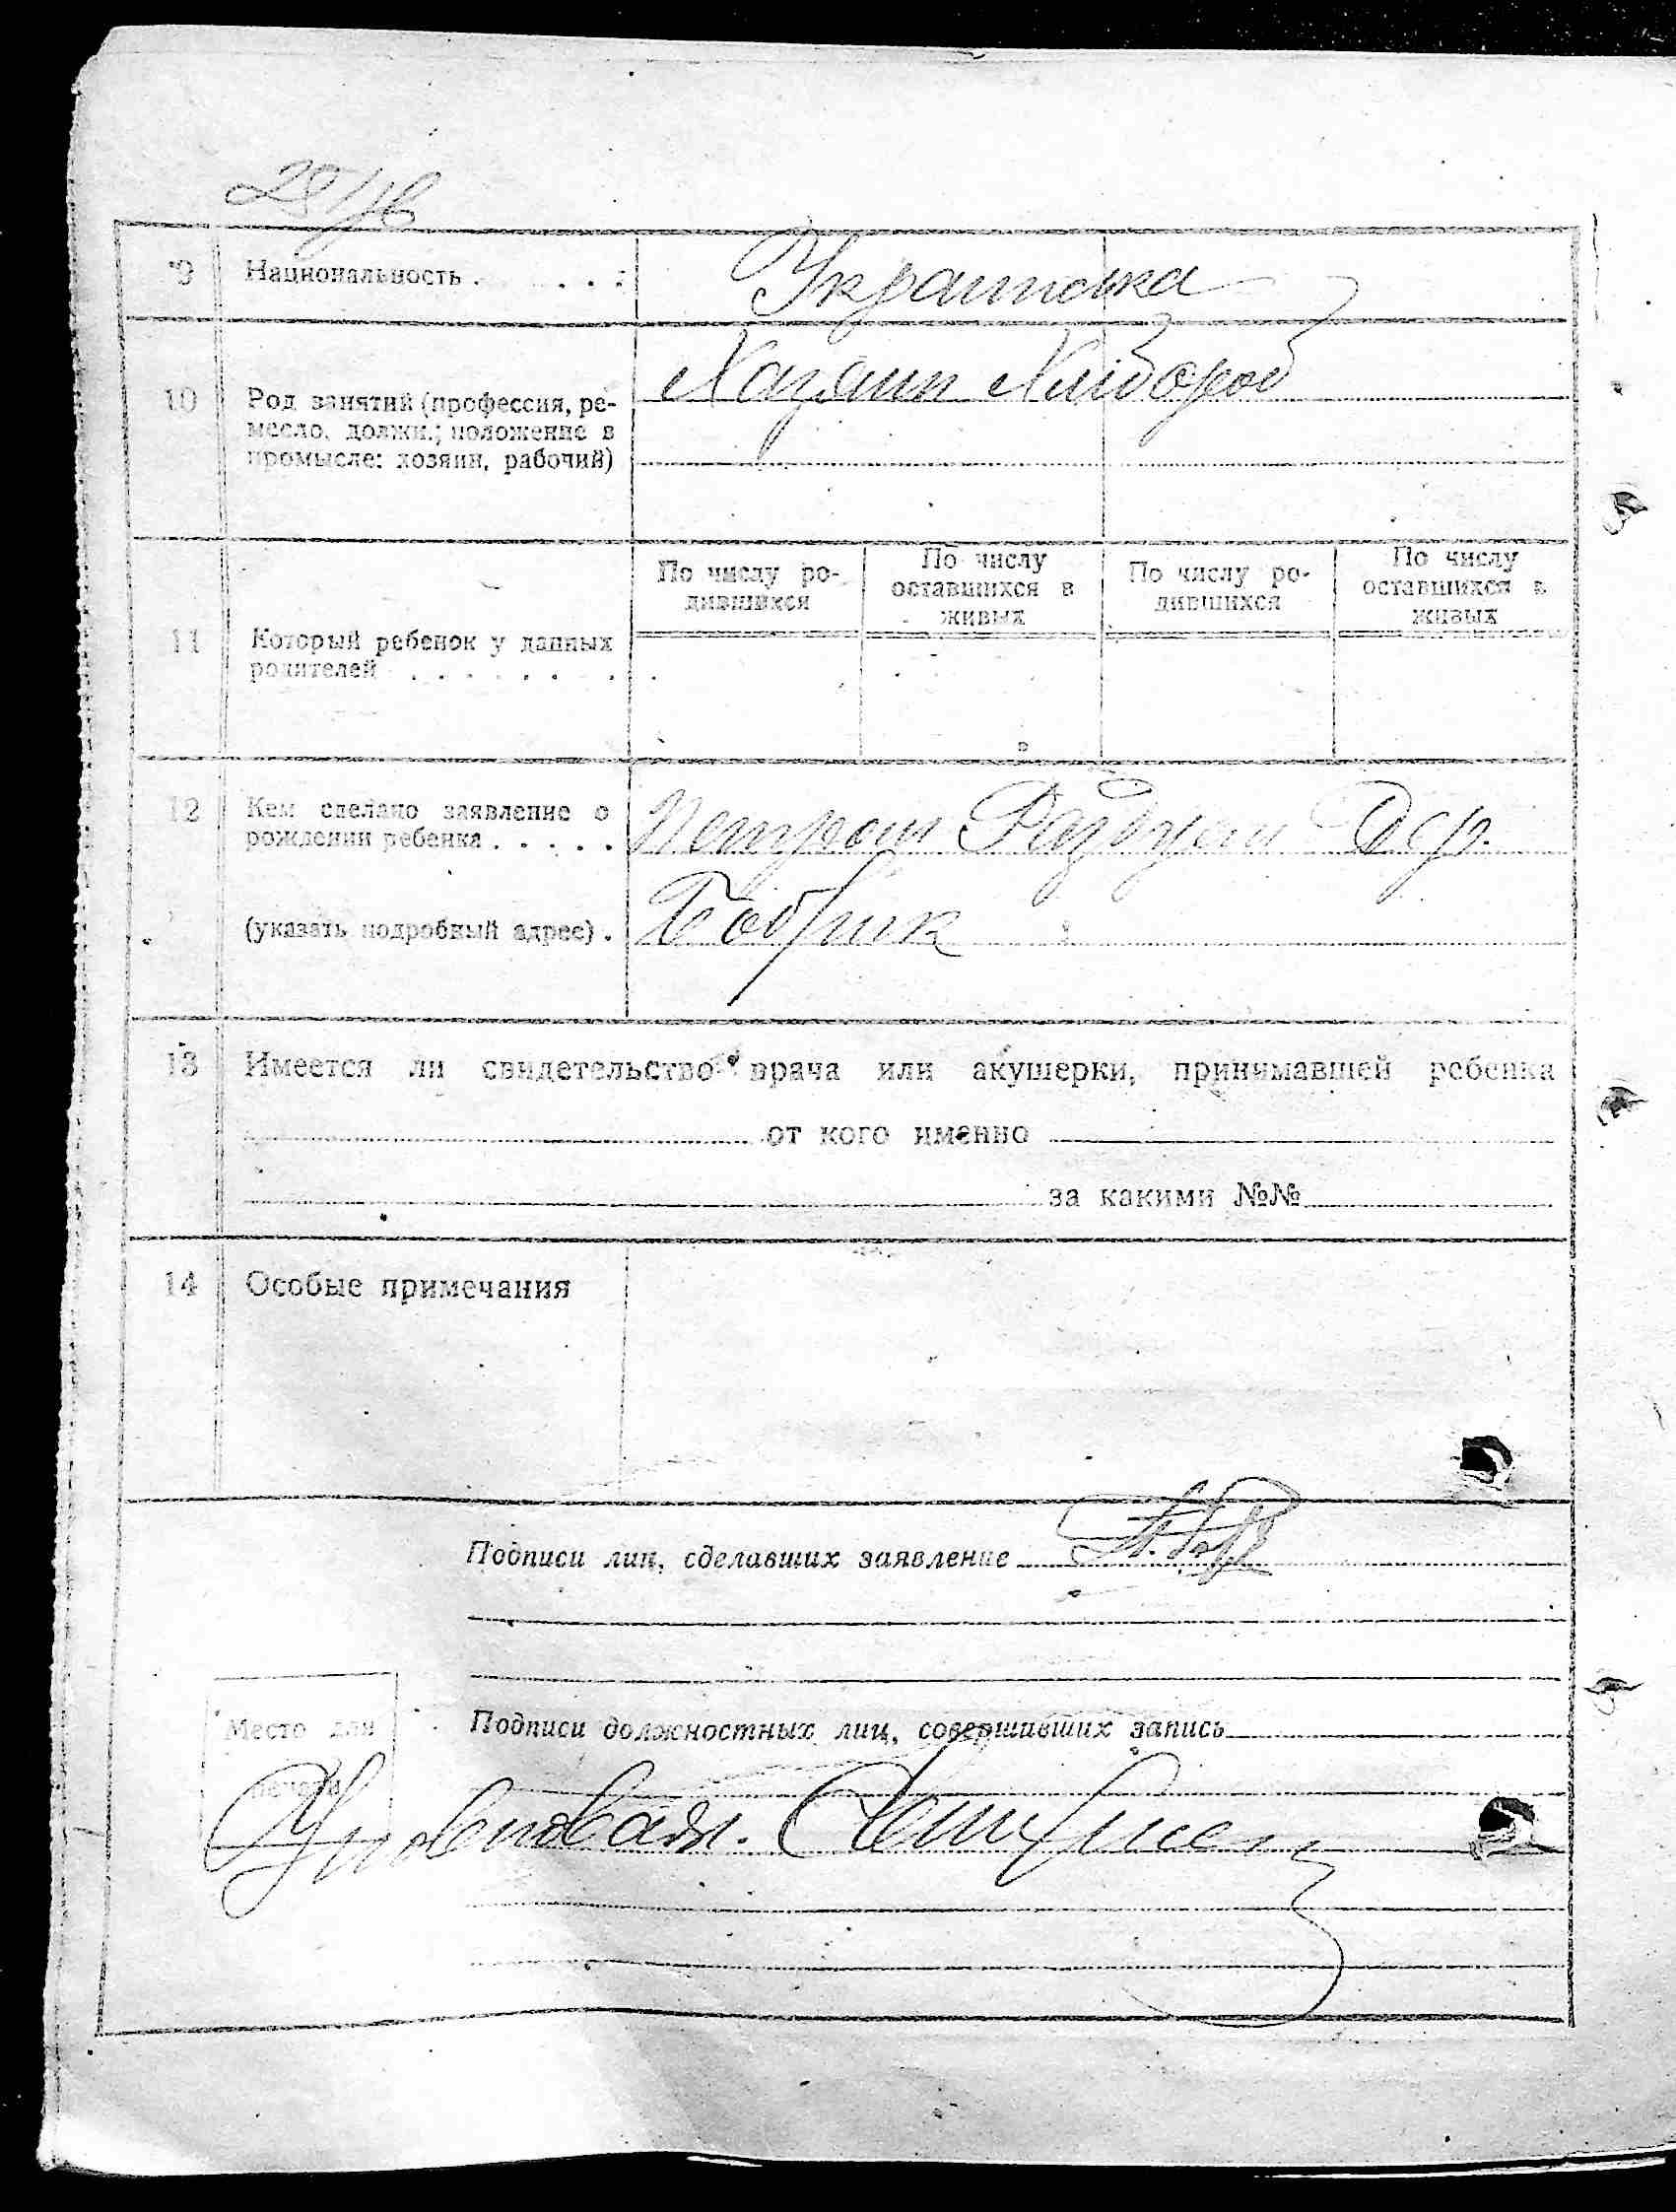 9 Национальность . . . . :
Українська
10 Род занятий (профессия, ре-
месло, должн.; положение в
промысле: хозяин, рабочий)
Хазяин Хлібороб
По числу ро-
дившихся
По числу
оставшихся в
живых
По числу ро-
дившихся
По числу
оставшихся в
живых
11 Который ребенок у данных
родителей . . . . . . . .
12 Кем сделано заявление о
рождении ребенка . . . . .
Петром Дер.
(указать подробный адрес) .
Бобрик
13 Имеется ли свидетельство врача или акушерки, принимавшей ребенка
от кого именно
за какими №№
14 Особые примечания
Подписи лиц, сделавших заявление
Место для
печати
Подписи должностных лиц, совершивших запись